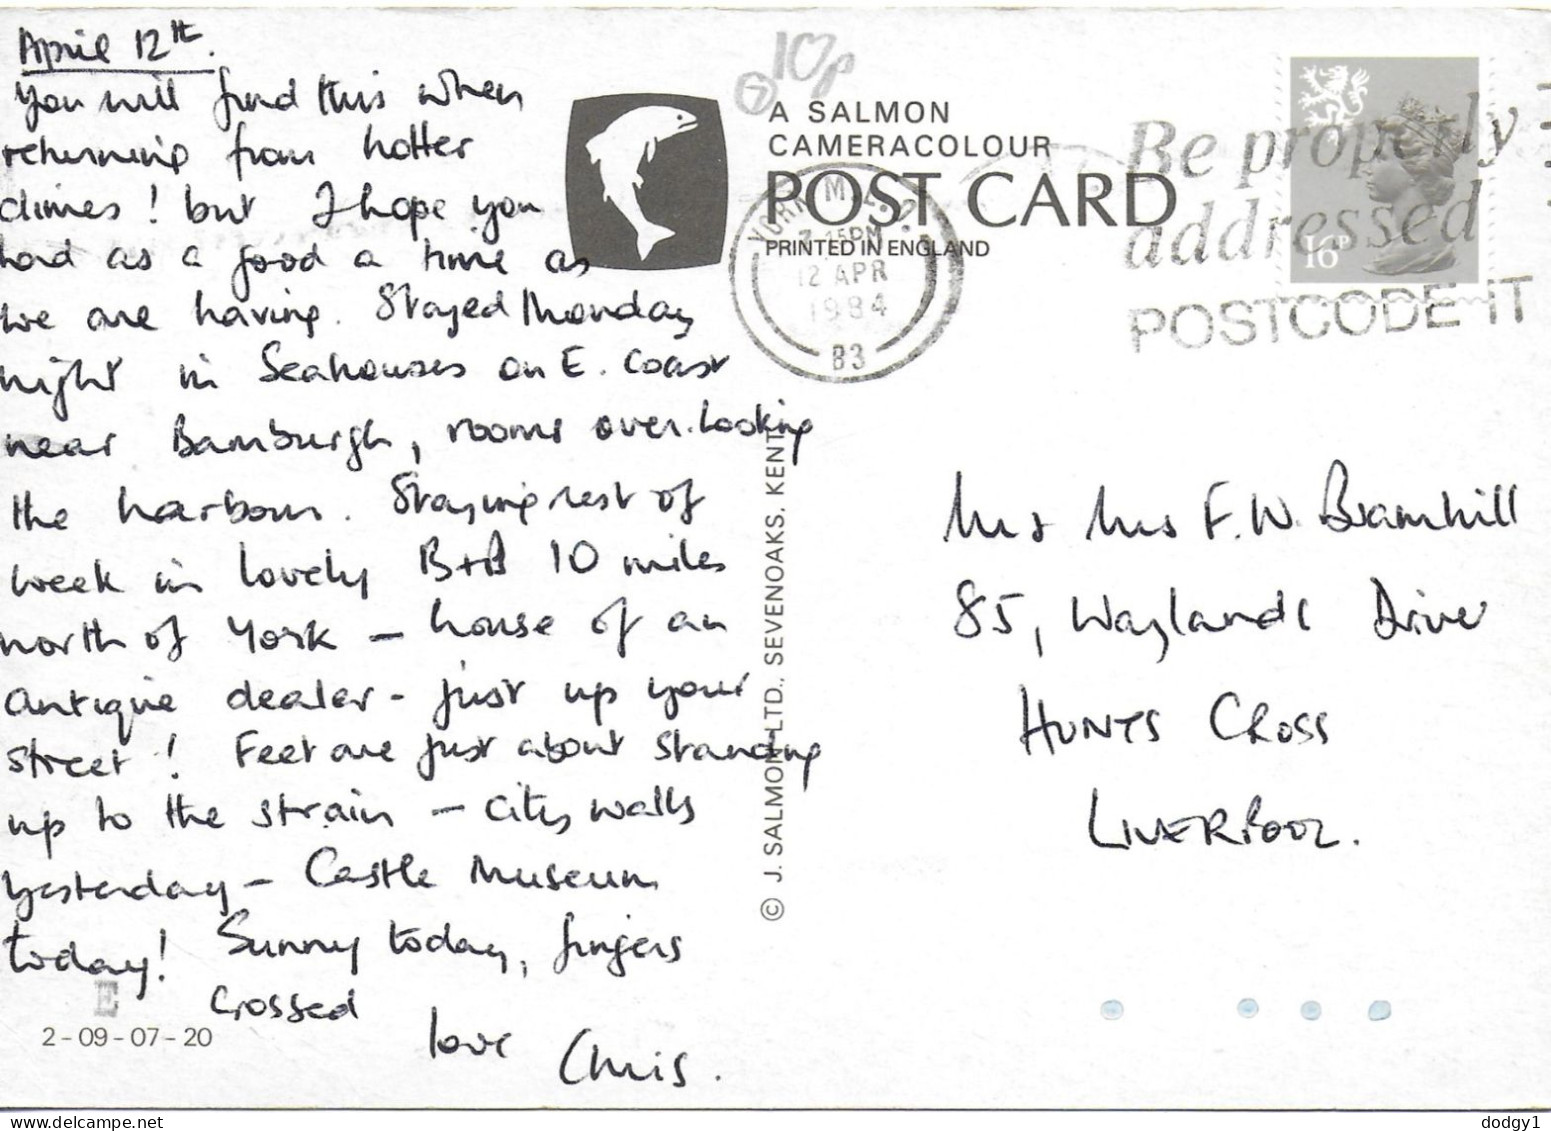 April 12th.
You will find this when
returning from hotter
climes! but I hope you
had as a good a time as
we are having. Stayed Monday
night in Seahouses on E. Coast
near Bamburgh, rooms over looking
the harbour. Staying rest of
week in lovely B+B 10 miles
north of York - house of an
antique dealer - just up your
street! Feet are just about standing
up to the strain - city walls
yesterday - Castle Museum
today! Sunny today, fingers
crossed
love Chris.
E
2-09-07-20
10p
7
A SALMON
CAMERACOLOUR
POST CARD
PRINTED IN ENGLAND
© J. SALMON LTD., SEVENOAKS, KENT
YORK
7.15PM
12 APR
1984
B3
Be properly
addressed
POSTCODE IT
16P
Mr & Mrs F.W. Bramhill
85, Waylands Drive
HUNTS CROSS
LIVERPOOL.
dodgy1